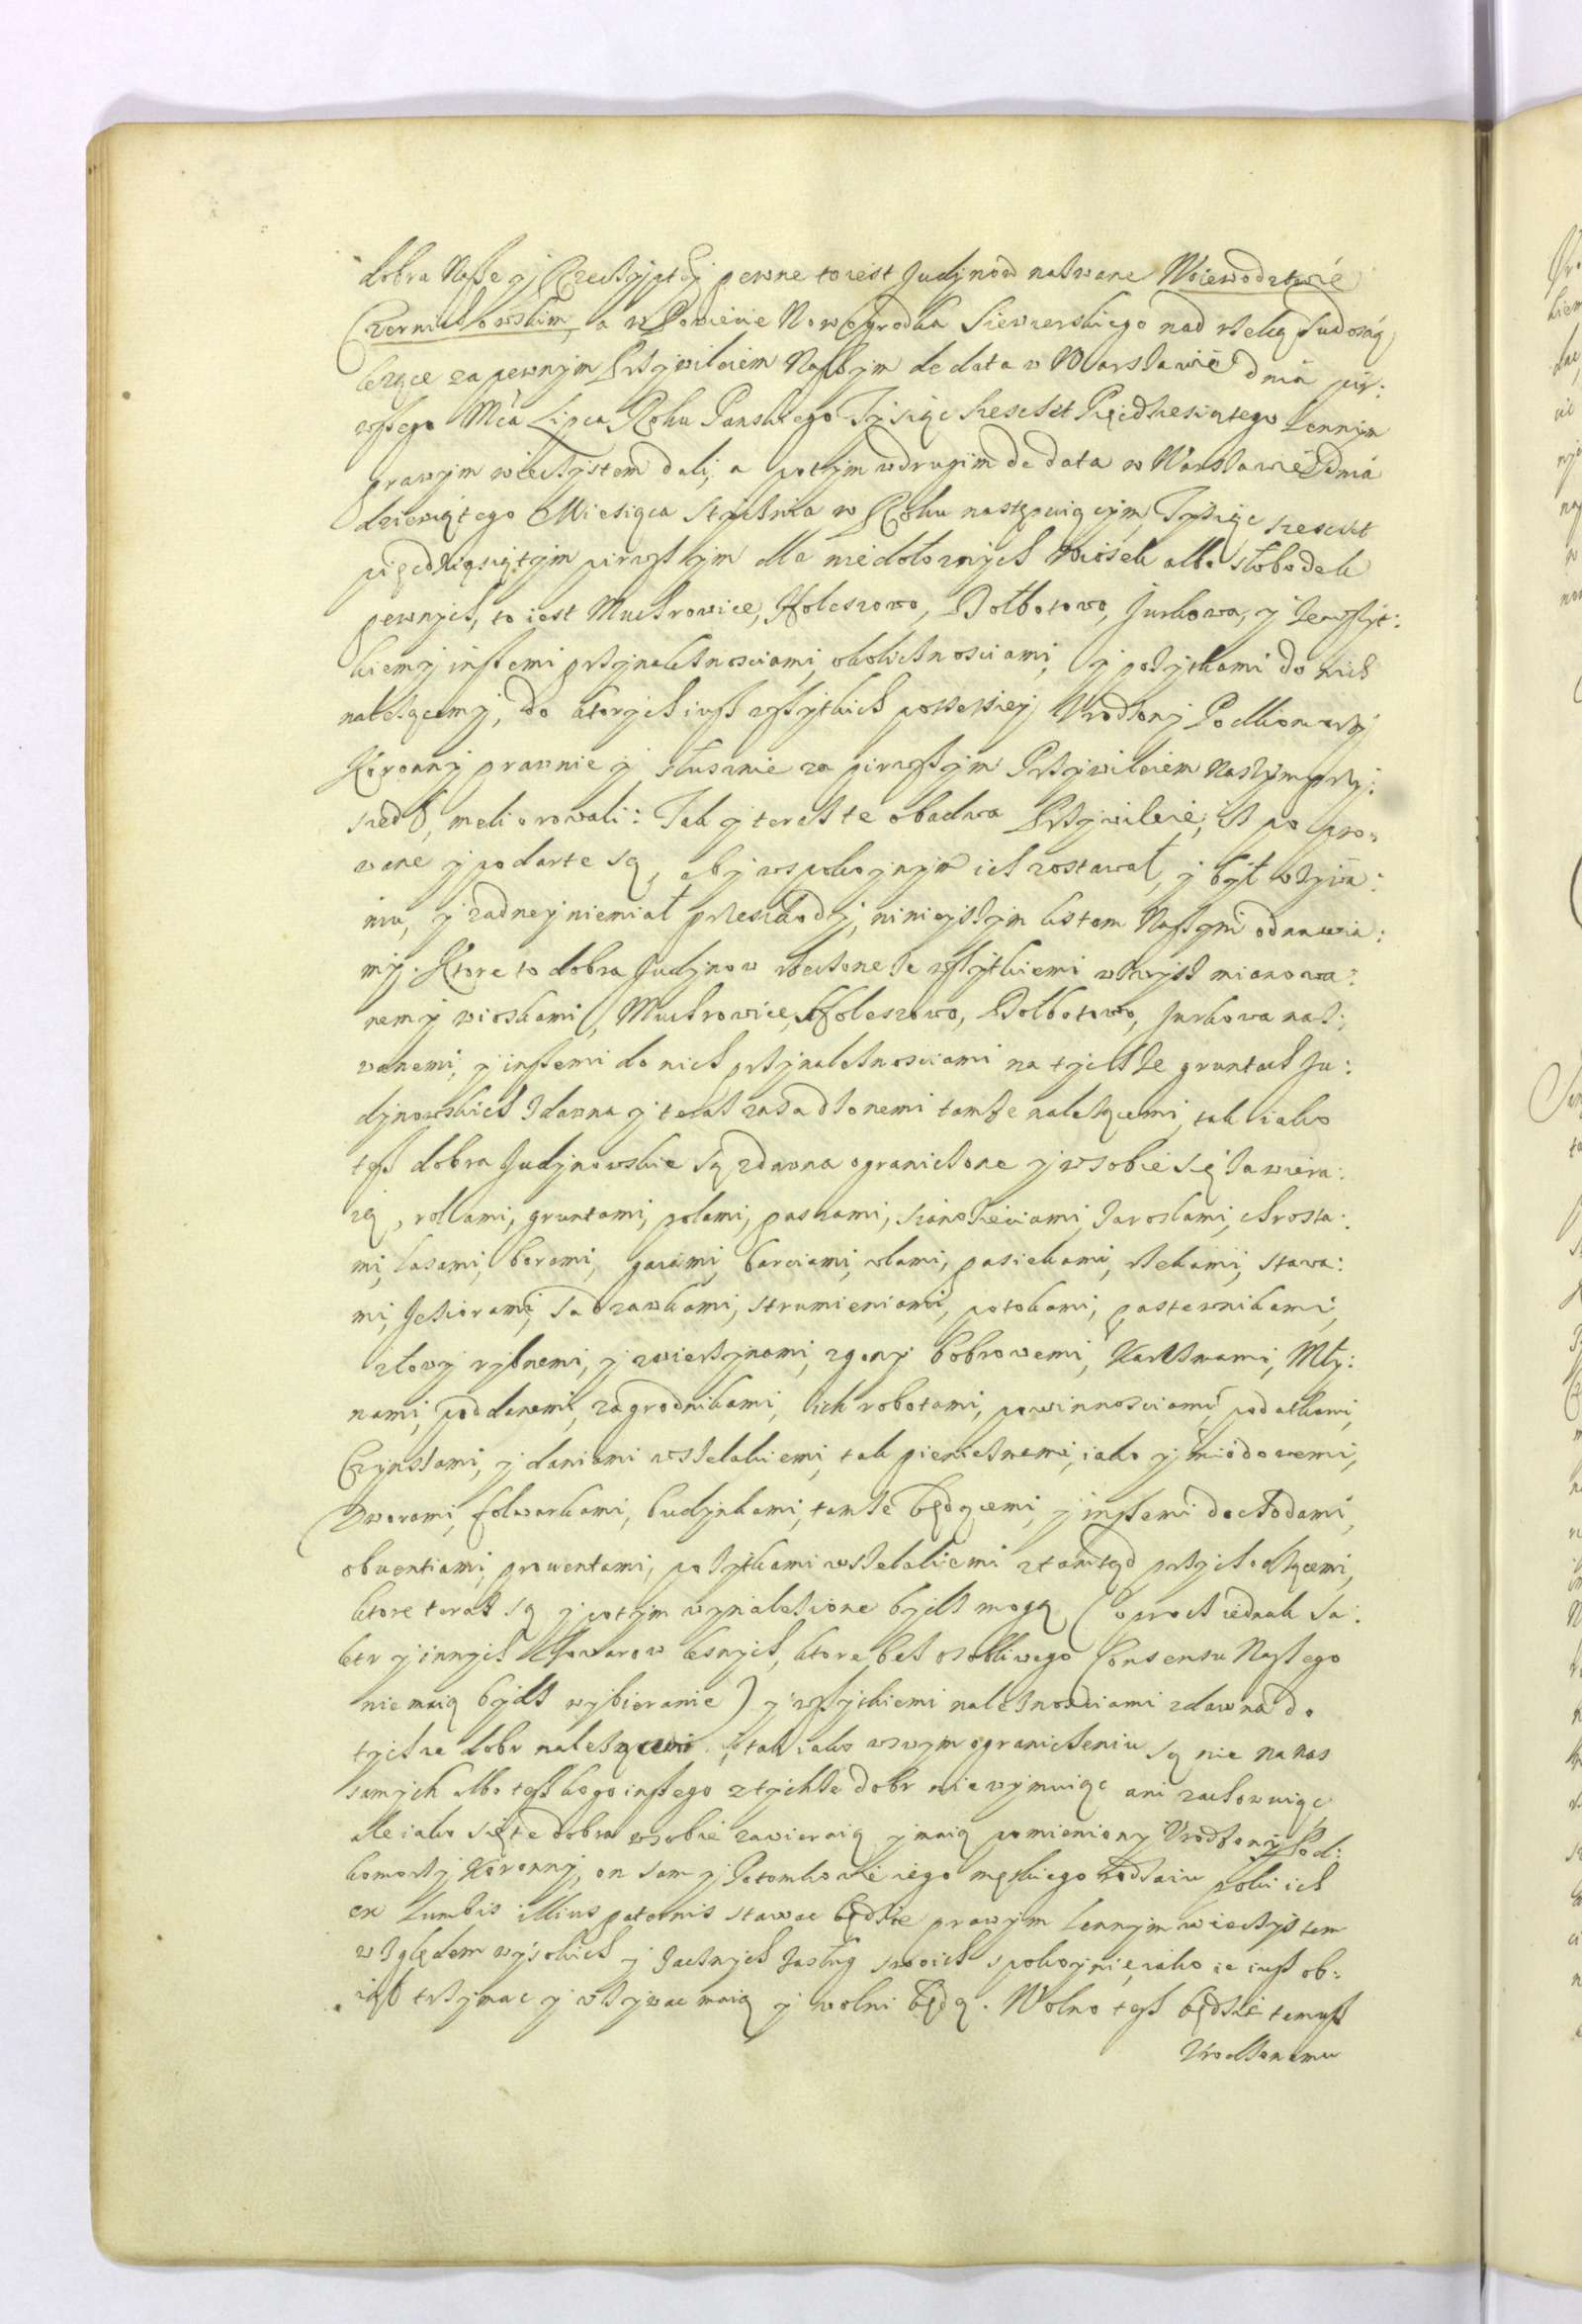 dobra Nasze y Rzeczyptey pewne to iest Judynow nazwane Woiewodztwie
Czernichowskim, a w Powiecie Nowogrodka Siewierskiego nad rzeką Sudośtą
leżące za pewnym Przywileiem Naszym de data w Warszawie dnia pir:
wszego Mca Lipca Roku Panskiego Tysiąc szescset Piędziesiątego Lennym
prawym wieczystem dali, a potym w drugim de data w Warszawie Dnia
dziewiątego Miesiąca Stycznia w Roku następuiącym, Tysiąc szescset
pięćdziesiątym pirwszym dla niedołożnych Wiosek albo słobodek
pewnych, to iest Muchrowice, Holeszowo, Dołbotowo, Jurkowa, y ze wszyt:
kiemy inszemi przynależnosciami, okolicznosciami, y pożytkami do nich
należącemy, do ktorych iusz wszytkich possessiey Vrodzony Podkomorzy
Koronny prawnie y słusznie za pirwszym Przywileiem Naszym przy:
szedł, meliorowali: Tak y teraz te obadwa Przywileie, iż po pro:
wane y podarte są, aby w spokoynym ich zostawał, y był vżywa:
niu, y zadney niemiał przeszkody, ninieyszym listem Naszym odnawia:
my. Ktore to dobra Judynow rzeczone ze wszytkiemi w zwysz mianowa:
nemy wioskami, Muchrowice, Holeszowo, Dołbotowo, Jurkowa naz:
wanemi, y inszemi do nich przynależnosciami na tychże gruntach Ju:
dynowskich zdawna y teraz zasadzonemi tamże należącemi, tak iako
tesz dobra Judynowskie są zdawna ograniczone y w sobie się zawiera:
ią, rollami, gruntami, polami, paszami, sianożęciami, zaroslami, chrosta:
mi, lasami, borami, gaiami, barciami, vlami, pasiekami, rzekami, stawa:
mi, Jeziorami, sadzawkami, strumieniami, potokami, pastewnikami,
złowy rybnemi, y zwierzynami, zgony bobrowemi, Karczmami, Mły:
nami, poddanemi, zagrodnikami, ich robotami, powinnosciami, podatkami,
Czynszami, y daniami wszelakiemi, tak pienieżnemi, iako y miodowemi,
Dworami, folwarkami, budynkami, tamże będącemi, y inszemi dochodami,
obventiami, prowentami, pożytkami wszelakiemi ztamtąd przychodzącemi,
ktore teraz są y potym wynalezione bydź mogą, (oprocz iednak Sa:
letr y innych Thowarow lesnych, ktore bez osobliwego Consensu Naszego
nie maią bydź wybieranie) y wszytkiemi należnosciami zdawna do
tychże dobr należącemi, tak iako w swym ograniczeniu są nie na nas
samych albo tesz kogo inszego z tychże dobr nie wymuiąc ani zachowuiąc
ale iako się te dobra w sobie zawieraią y maią pomieniony Vrodzony Pod:
komorzy Koronny, on sam y Potomkowie iego męskiego rodzaiu poki ich
ex Lumbis illius paternis stawać będzie prawym Lennym wieczystem
względem wysokich y zacnych zasług swoich spokoynie, iako ie iusz ob:
iął trzymac y vżywac maią y wolni będą. Wolno tesz będzie temusz
Vrodzonemu